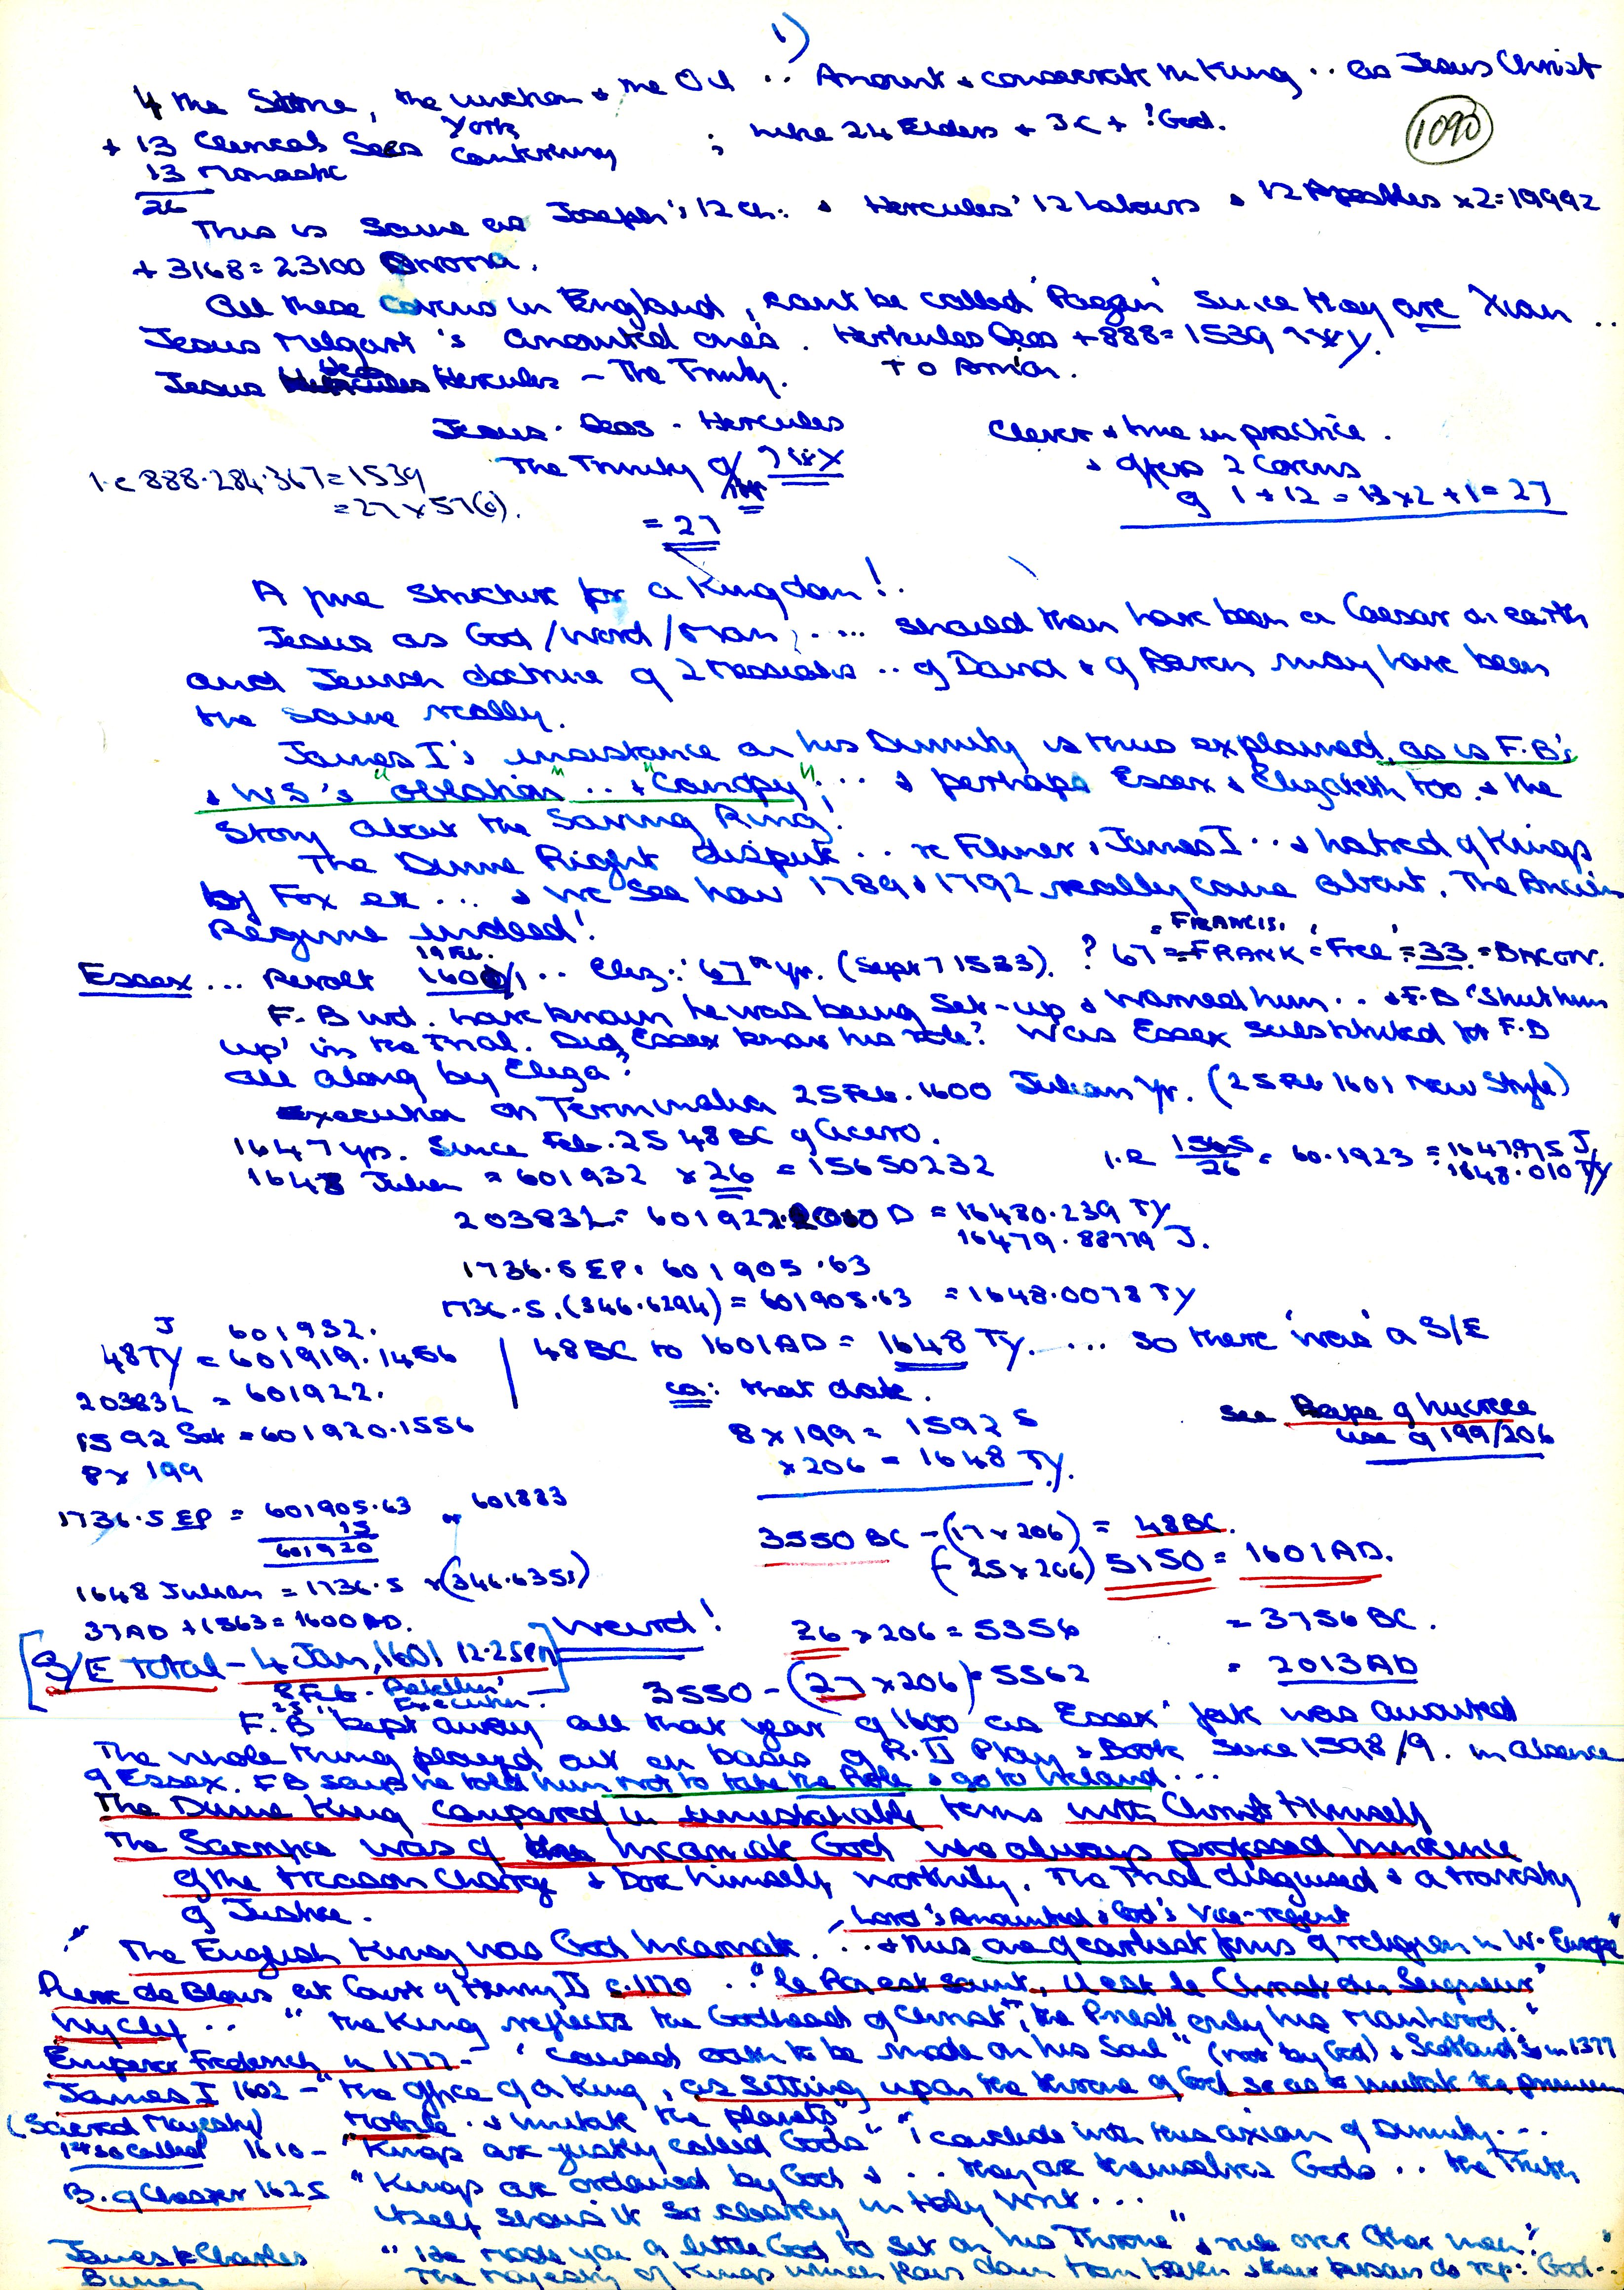 1)
4 the Stone, the unction & the Oil .. Anoint & consecrate the King .. as Jesus Christ
1090
+ 13 Clerical Sees York Canterbury ; like 24 Elders + JC + ! God.
13 Monastic
26
This is same as Joseph's 12 Ch: & Hercules' 12 Labours & 12 Apostles x2=19992
+ 3168 = 23100
All these Covens in England, cant be called 'Pagan' since they are Xian ..
Jesus Melqart 's anointed ones. Herkules Deos + 888 = 1539
Jesus Deos Hercules – The Trinity. TO
Jesus · Deos · Hercules
Clever & true in practice.
1.e 888·284·367=1539
The Trinity of
& offers 2 Covens
= 27 x 57(0).
of 1 + 12 = 13 x 2 + 1 = 27
= 27
A fine structure for a Kingdom!
Jesus as God/Word/Man; .... should then have been a Caesar on earth
and Jewish doctrine of 2 Messiahs .. of David & of Aaron may have been
the same really.
James I's insistance on his Divinity is thus explained, as is F.B's
& W.S's "oblation" .. & "Canopy", ... & perhaps Essex & Elizabeth too. & the
Story about the Saving Ring!
The Divine Right dispute .. re Filmer, James I .. & hatred of Kings
by Fox etc ... & we see how 1789 & 1792 really came about. The Ancien
Regime indeed!
Essex ... Revolt 1600/1 .. Eliz: 67th yr. (Sept 7 1533). ? 67 = FRANCIS. = FRANK = Free = 33 = BACON.
F.B wd. have known he was being set-up & warned him .. & F.B 'Shut him
up' in the trial. Did Essex know his role? Was Essex substituted for F.B
all along by Eliza?
Execution on Terminalia 25 Feb. 1600 Julian Yr. (25 Feb 1601 New Style)
1647 yrs. since Feb. 25 48 BC of Cicero.
1648 Julian = 601932 x 26 = 15650232
i.e 1565/26 = 60.1923 = 1647.975 J
1648.010 TY
20383L = 601922 D = 16480.239 TY
16479.88779 J.
1736.5 EP. 601905.63
1736.5.(346.6294) = 601905.63 = 1648.0078 TY
J 601932.
48TY = 601919.1456
48BC to 1601AD = 1648 TY. ... so there 'was' a S/E
20383L = 601922.
ca: that date.
1592 Sat = 601920.1556
8 x 199 = 1592 S
See Rape of Lucrece
use of 199/206
8 x 199
x 206 = 1648 TY.
1736.5 EP = 601905.63 or 601883
15
601920
3550 BC – (17 x 206) = 48BC.
(– 25 x 206) 5150 = 1601AD.
1648 Julian = 1736.5 x (346.6351)
37AD + 1563 = 1600AD.
Weird!
26 x 206 = 5356 = 3756 BC.
[S/E Total – 4 Jan, 1601 12.25pm]
3550 – (27 x 206) = 5562 = 2013AD
8 Feb – Rebellion
25 " Execution.
F.B kept away all that year of 1600 as Essex' fate was awaited
The whole thing played out on basis of R.II Play & Book since 1598/9. in absence
of Essex. FB says he told him not to take the Role & go to Ireland ...
The Divine King compared in unmistakable terms with Christ Himself
The Sacrifice was of the Incarnate God who always professed innocence
of the treason charge & bore himself worthily. The Trial disguised & a travesty
of Justice.
Lord's Anointed & God's Vice-regent
" The English King was God Incarnate. .. & thus one of earliest forms of religion in W. Europe"
Pierre de Blois at Court of Henry II c.1170 .. "le Roi est Saint, il est le Christ du Seigneur"
Wyclif .. "the King reflects the Godhead of Christ", the Priest only his Manhood."
Emperor Frederick in 1177 – 'Caused oath to be made on his Soul" (not by God) & Scotland's in 1377
James I 1602 – "the office of a King, as sitting upon the throne of God so as to imitate the primum
(Sacred Majesty) Mobile .. & imitate the planets"
1st so called 1610 – "Kings are justly called Gods" "I conclude with this axiom of Divinity...
B. of Chester 1625 "Kings are ordained by God & .. they are themselves Gods .. the Truth
itself shows it so clearly in Holy Writ ... "
James to Charles "He made you a little God to sit on his Throne & rule over Other men."
"The Majesty of Kings which flows down from Heaven & their persons do rep: God..